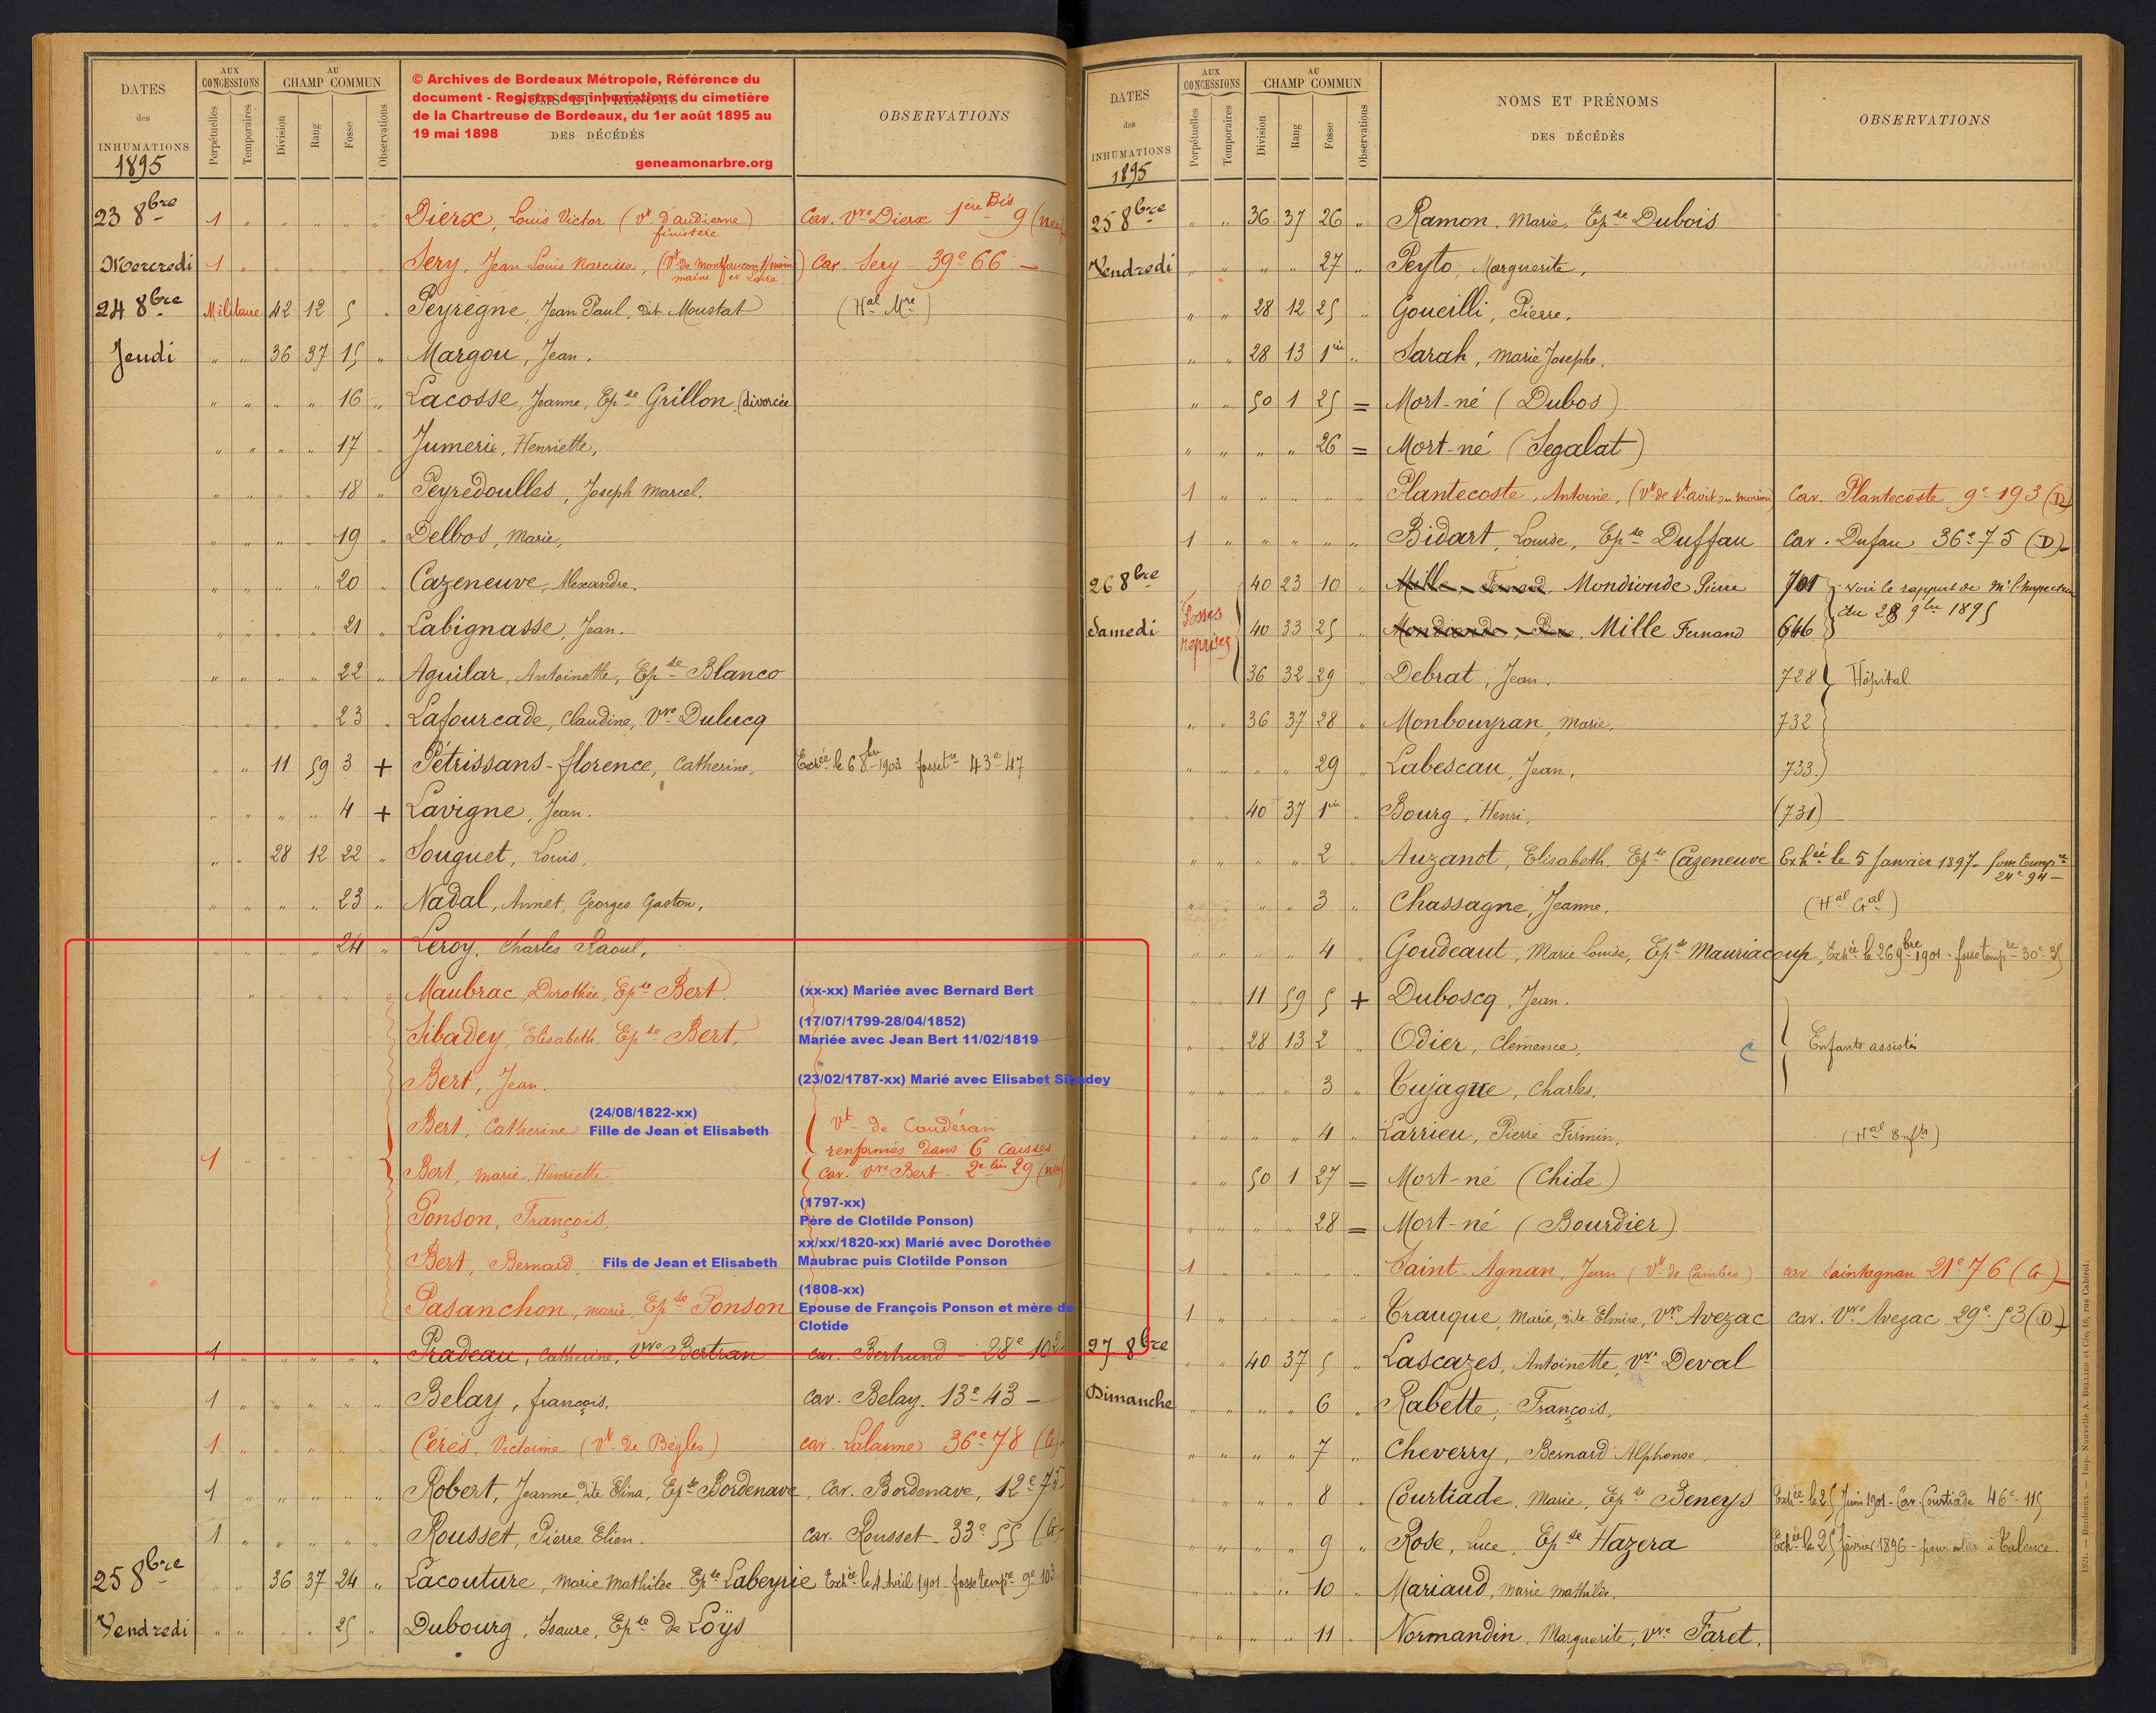 DATES
des
INHUMATIONS
1895
AUX
CONCESSIONS
Perpétuelles
Temporaires
AU
CHAMP COMMUN
Division
Rang
Fosse
Observations
© Archives de Bordeaux Métropole, Référence du
document - Registre des inhumations du cimetière
de la Chartreuse de Bordeaux, du 1er août 1895 au
19 mai 1898
geneamonarbre.org
NOMS ET PRÉNOMS
DES DÉCÉDÉS
OBSERVATIONS
23 8bre 1 " " " " " Dierx, Louis Victor (Vt d'audierne) finistère Cav. Vve Dierx 1ère Bis 9 (neuf
Mercredi 1 " " " " " Sery, Jean Louis Narcisse, Cav. Sery - 39e 66 -
maine et Loire
24 8bre Militaire 42 12 5 " Peyrègne, Jean Paul, dit Moustat (Hal Mre)
Jeudi " " 36 37 15 " Margou, Jean.
" " " " 16 " Lacosse, Jeanne, Epse Grillon (divorcée
" " " " 17 " Jumerie, Henriette,
" " " " 18 " Peyredoulles, Joseph Marcel.
" " " " 19 " Delbos, Marie,
" " " " 20 " Cazeneuve, Alexandre.
" " " " 21 " Labignasse, Jean.
" " " " 22 " Aguilar, Antoinette, Epse Blanco
" " " " 23 " Lafourcade, Claudine, Vve Dulucq
" " 11 59 3 + Pétrissans-florence, Catherine, Exhée le 6 8bre 1903 43e 47
" " " " 4 + Lavigne, Jean.
" " 28 12 22 " Souguet, Louis,
" " " " 23 " Nadal, Annet, Georges Gaston,
" " " " 24 " Leroy, Charles Raoul,
Maubrac, Dorothée, Epse Bert. (xx-xx) Mariée avec Bernard Bert
Sibadey, Elisabeth, Epse Bert. (17/07/1799-28/04/1852)
Mariée avec Jean Bert 11/02/1819
Bert, Jean. (23/02/1787-xx) Marié avec Elisabet Sibadey
Bert, Catherine (24/08/1822-xx)
Fille de Jean et Elisabeth
Vt de Caudéran
renfermés dans 6 caisses
1 " " " " Bert, Marie, Henriette Cav. Vve Bert - 2e bis 29 (neuf
Ponson, François. (1797-xx)
Père de Clotilde Ponson)
Bert, Bernard, Fils de Jean et Elisabeth xx/xx/1820-xx) Marié avec Dorothée
Maubrac puis Clotilde Ponson
Pasanchon, marie, Epse Ponson (1808-xx)
Epouse de François Ponson et mère de
Clotide
1 " " " " " Pradeau, Catherine, Vve Bertran Cav. Bertrand - 28e 102
1 " " " " " Belay, françois, Cav. Belay. 13e 43 -
1 " " " " " Cérès, Victorine (Vt de Bègles) cav. Lalanne 36e 78 (G)
1 " " " " " Robert, Jeanne, dite Elina, Epse Bordenave, Cav. Bordenave, 12e 75
1 " " " " " Rousset, Pierre Elien. Cav. Rousset - 33e 55 (G)
25 8bre " " 36 37 24 " Lacouture, Marie Mathilde. Epse Labeyrie Exhée le 4 Avril 1901 - fosse tempre 9e 103
Vendredi " " " " 25 " Dubourg, Isaure, Epse de Loÿs
DATES
des
INHUMATIONS
1895
AUX
CONCESSIONS
Perpétuelles
Temporaires
AU
CHAMP COMMUN
Division
Rang
Fosse
Observations
NOMS ET PRÉNOMS
DES DÉCÉDÉS
OBSERVATIONS
25 8bre " " 36 37 26 " Ramon, Marie, Epse Dubois
Vendredi " " " " 27 " Peyto, Marguerite,
" " 28 12 25 " Goueilli, Pierre.
" " 28 13 1er " Sarah, Marie Josephe.
" " 50 1 25 = Mort-né (Dubos)
" " " " 26 = Mort-né (Segalat)
1 " " " " " Plantecoste, Antoine, Cav. Plantecoste 9e 193 (D)
1 " " " " " Bidart, Louise, Epse Duffau Cav. Dufau 36e 75 (D)
26 8bre 40 23 10 " Mille, Fernand. Mondionde Pierre 701 voir le rapport de Mr l'Inspecteur
du 28 9bre 1895
Samedi Fosses
reprises 40 33 25 " Mille Fernand 646
36 32 29 " Debrat, Jean, 728 Hôpital
" " 36 37 28 " Monbouyran, Marie, 732
" " " " 29 " Labescau, Jean, 733
" " 40 37 1er " Bourg, Henri, (731)
" " " " 2 " Auzanot, Elisabeth, Epse Cazeneuve Exhée le 5 Janvier 1897 -
24e 94 -
" " " " 3 " Chassagne, Jeanne, (Hal Gal)
" " " " 4 " Goudeaut, Marie Louise, Epse Mauriacoup, Exhée le 26 9bre 1901 - fosse tempre 30e 35
" " 11 59 5 + Duboscq, Jean.
" " 28 13 2 " Odier, Clémence, Enfants assistés
" " " " 3 " Tujague, Charles,
" " " " 4 " Larrieu, Pierre Firmin, (Hal Enfts)
" " 50 1 27 = Mort-né (Chide)
" " " " 28 = Mort-né (Bourdier)
1 " " " " " Saint-Agnan, Jean (Vt de Cambes) cav. Saintagnan 21e 76 (G)
1 " " " " " Trauque, Marie, dite Elmire, Vve Avezac cav. Vve Avezac 29e 53 (D)
27 8bre " " 40 37 5 " Lascazes, Antoinette, Vve Deval
Dimanche " " " " 6 " Rabette, François,
" " " " 7 " Cheverry, Bernard Alphonse
" " " " 8 " Courtiade, Marie, Epse Beneys Exhée le 25 Juin 1901 - Cav. Courtiade 46e 115
" " " " 9 " Rose, Luce, Epse Hazera Exhée le 25 février 1896 - pour aller à Talence.
" " " " 10 " Mariaud, Marie Mathilde,
" " " " 11 " Normandin, Marguerite, Vve Faret,
1821. — Bordeaux. — Imp. Nouvelle A. BELLIER et Cie, 16, rue Cabirol.